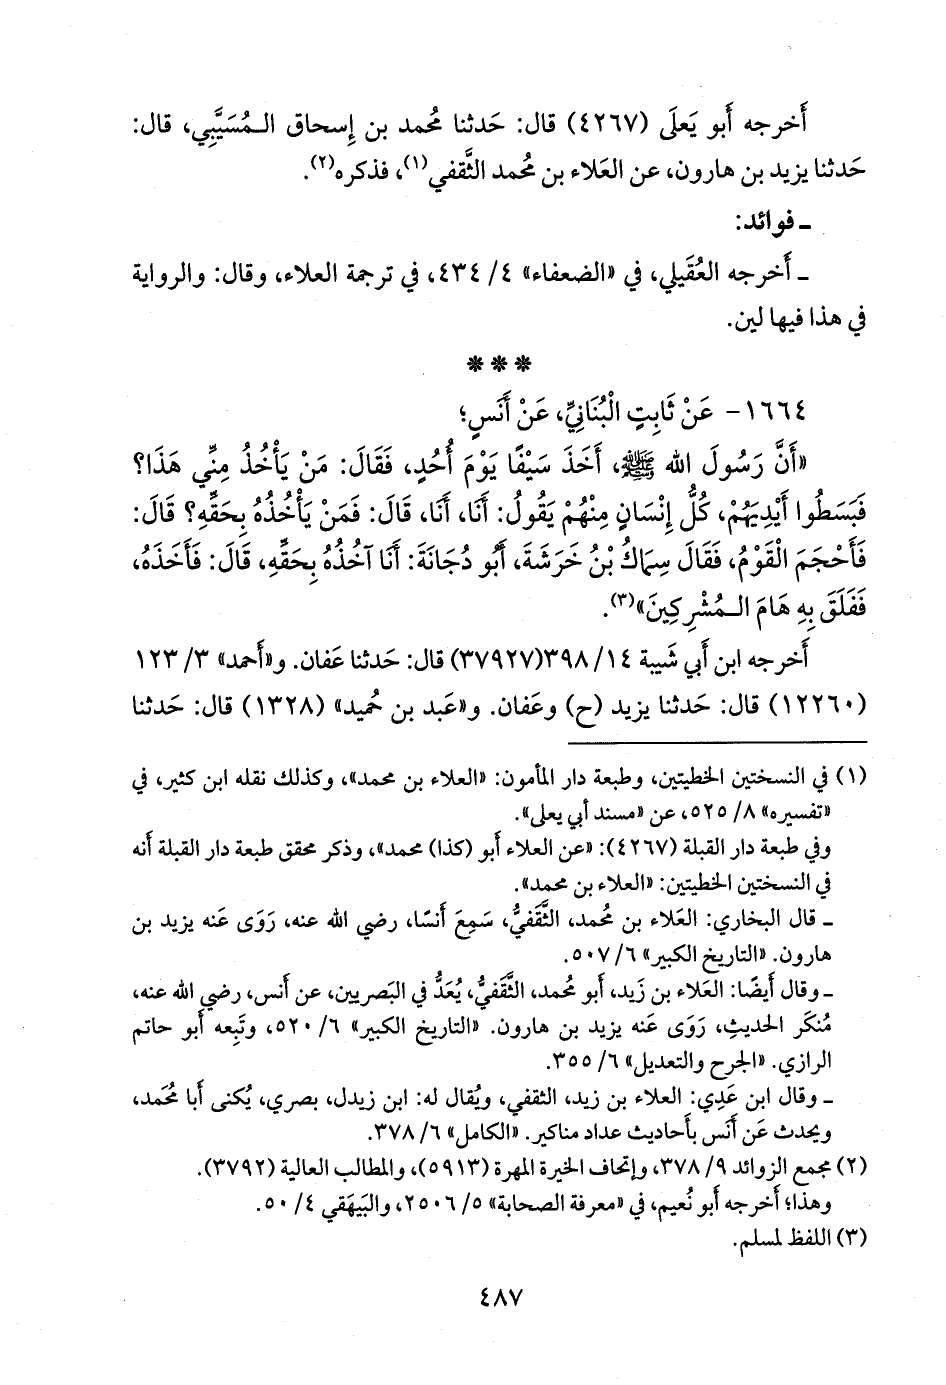 أَخرجه أَبو يَعلَى (٤٢٦٧) قال: حَدثنا مُحمد بن إِسحاق المُسَيَّبِي، قال:
حَدثنا يزيد بن هارون، عن العَلاء بن مُحمد الثَّقفي(١)، فذكره(٢).
ـ فوائد:
ـ أَخرجه العُقَيلي، في «الضعفاء» ٤/ ٤٣٤، في ترجمة العلاء، وقال: والرواية
في هذا فيها لين.
* * *
١٦٦٤- عَنْ ثَابِتٍ الْبُنَانِيِّ، عَنْ أَنَسٍ؛
«أَنَّ رَسُولَ الله ﷺ، أَخَذَ سَيْفًا يَوْمَ أُحُدٍ، فَقَالَ: مَنْ يَأْخُذُ مِنِّي هَذَا؟
فَبَسَطُوا أَيْدِيَهُمْ، كُلُّ إِنْسَانٍ مِنْهُمْ يَقُولُ: أَنَا، أَنَا، قَالَ: فَمَنْ يَأْخُذُهُ بِحَقِّهِ؟ قَالَ:
فَأَحْجَمَ الْقَوْمُ، فَقَالَ سِمَاكُ بْنُ خَرَشَةَ، أَبُو دُجَانَةَ: أَنَا آخُذُهُ بِحَقِّهِ، قَالَ: فَأَخَذَهُ،
فَفَلَقَ بِهِ هَامَ المُشْرِكِينَ»(٣).
أَخرجه ابن أَبي شَيبة ١٤/ ٣٩٨(٣٧٩٢٧) قال: حَدثنا عَفان. و«أَحمد» ٣/ ١٢٣
(١٢٢٦٠) قال: حَدثنا يزيد (ح) وعَفان. و«عَبد بن حُميد» (١٣٢٨) قال: حَدثنا
(١) في النسختين الخطيتين، وطبعة دار المأمون: «العلاء بن محمد»، وكذلك نقله ابن كثير، في
«تفسيره» ٨/ ٥٢٥، عن «مسند أبي يعلى».
وفي طبعة دار القبلة (٤٢٦٧): «عن العلاء أبو (كذا) محمد»، وذكر محقق طبعة دار القبلة أنه
في النسختين الخطيتين: «العلاء بن محمد».
ـ قال البخاري: العَلاء بن مُحمد، الثَّقَفيُّ، سَمِعَ أَنسًا، رضي الله عنه، رَوَى عَنه يزيد بن
هارون. «التاريخ الكبير» ٦/ ٥٠٧.
ـ وقال أَيضًا: العَلاء بن زَيد، أَبو مُحمد، الثَّقَفيُّ، يُعَدُّ في البَصريين، عن أَنس، رضي الله عنه،
مُنكَر الحديثِ، رَوَى عَنه يزيد بن هارون. «التاريخ الكبير» ٦/ ٥٢٠، وتَبِعه أَبو حاتم
الرازي. «الجرح والتعديل» ٦/ ٣٥٥.
ـ وقال ابن عَدِي: العلاء بن زيد، الثقفي، ويُقال له: ابن زيدل، بصري، يُكنى أَبا مُحَمد،
ويحدث عَن أَنس بأَحاديث عداد مناكير. «الكامل» ٦/ ٣٧٨.
(٢) مجمع الزوائد ٩/ ٣٧٨، وإتحاف الخيرة المهرة (٥٩١٣)، والمطالب العالية (٣٧٩٢).
وهذا؛ أخرجه أبو نُعيم، في «معرفة الصحابة» ٥/ ٢٥٠٦، والبَيهَقي ٤/ ٥٠.
(٣) اللفظ لمسلم.
٤٨٧